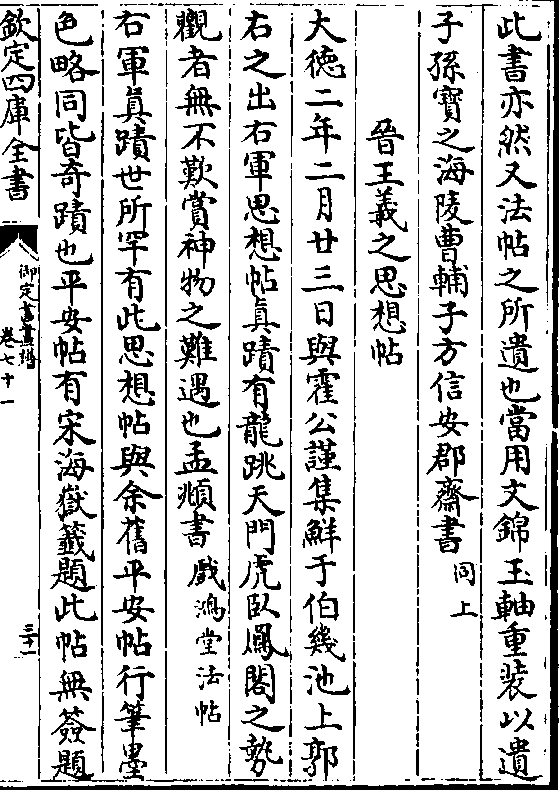 此書亦然又法帖之所遺也當用文錦玉軸重裝以遺
子孫寶之海陵曹輔子方信安郡齋書同上
晉王羲之思想帖
大徳二年二月廿三日與霍公謹集鮮于伯幾池上郭
右之出右軍思想帖真蹟有龍跳天門虎臥鳳閣之勢
觀者無不歎賞神物之難遇也孟頫書戲鴻堂法帖
右軍真蹟世所罕有此思想帖與余舊平安帖行筆墨
色略同皆奇蹟也平安帖有宋海嶽籤題此帖無簽題
欽定四庫全書
御定書畫譜
卷七十一
三十一